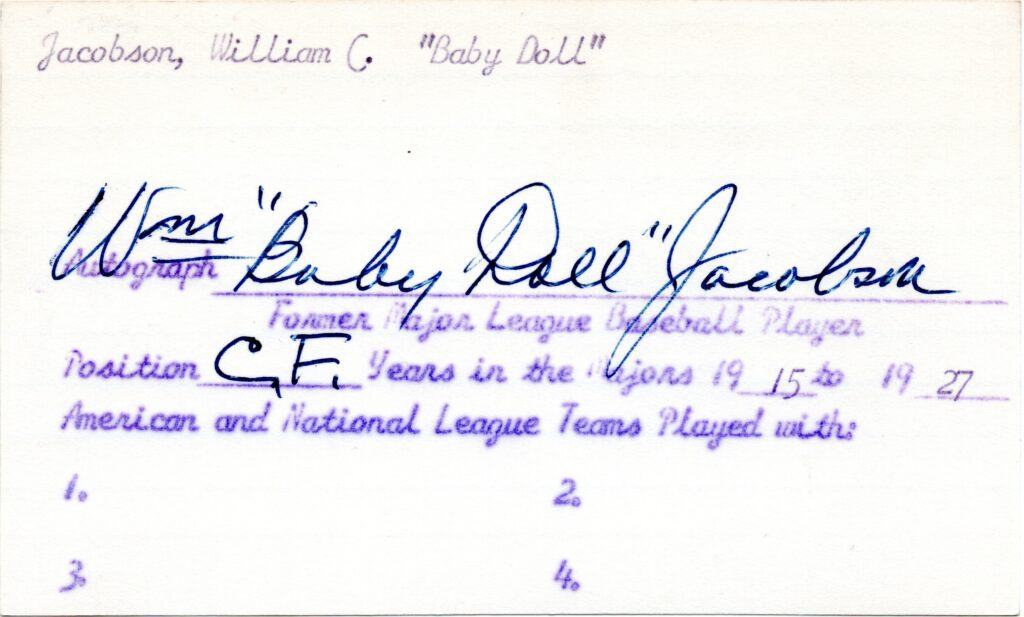 Jacobson, William C. "Baby Doll"
Wm "Baby Doll" Jacobson
Autograph
Former Major League Baseball Player
Position C.F. Years in the Majors 1915 to 1927
American and National League Teams Played with:
1. 2.
3. 4.